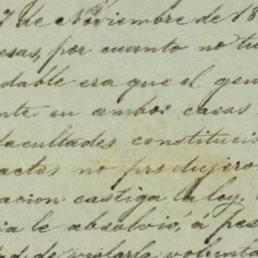 7 de Noviembre de 18
esas, por cuanto no tu
dable era que el gen
nte en ambos casos
facultades constitucio
actos no produjero
acion castiga la ley.
ia le absolvió, á pes
tad de violarla, volunta